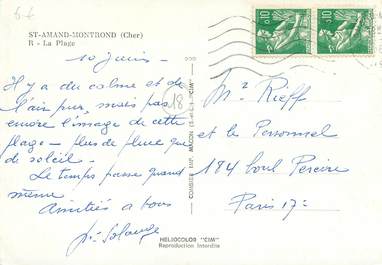 ST-AMAND-MONTROND (Cher)
R - La Plage
10 Juin -
Il y a du calme et de
l'air pur, mais pas
encore l'image de cette
plage - plus de pluie que
de soleil -
Le temps passe quand
même
Amitiés à tous
Solange
18
COMBIER IMP. MACON (S.-&-L.) "CIM"
HELIOCOLOR "CIM"
Reproduction Interdite
0,10
0,10
Mr Rieff
et le Personnel
184 boul Pereire
Paris 17e